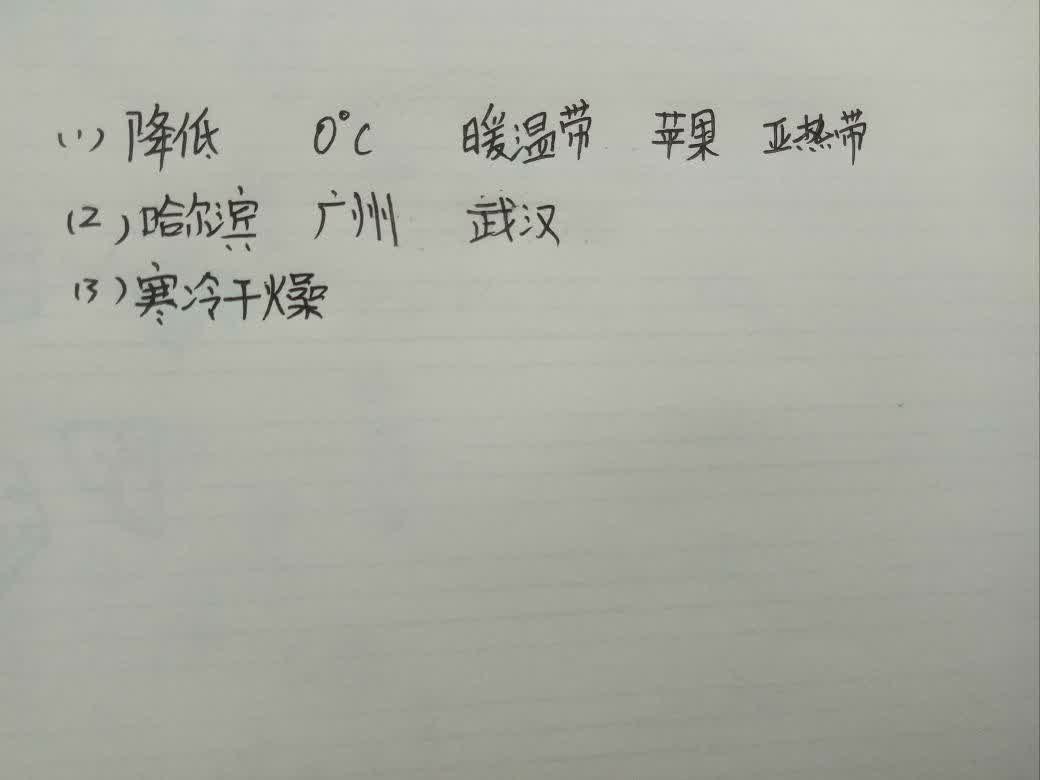 (1) 降低 0°C 暖温带 苹果 亚热带
(2) 哈尔滨 广州 武汉
(3) 寒冷干燥